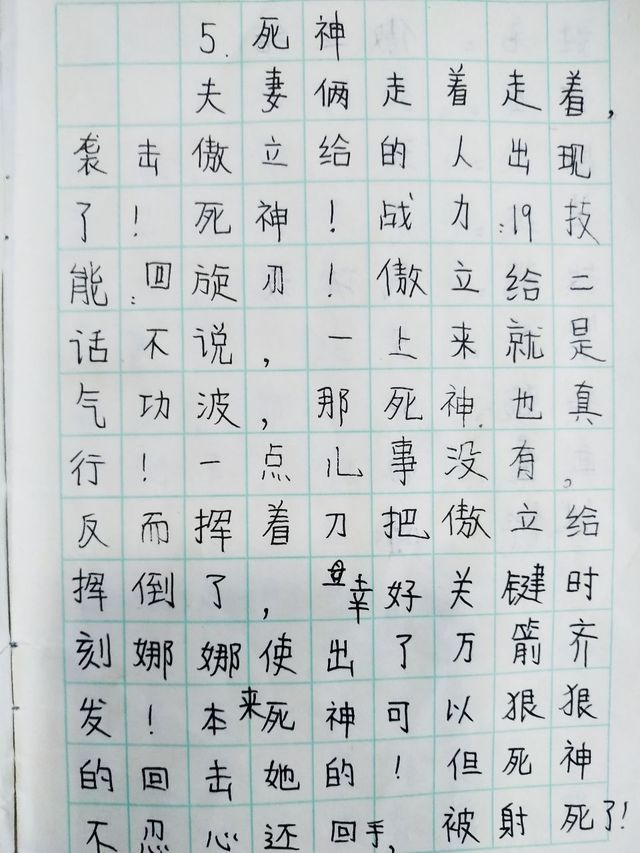 5.死神
夫妻俩走着走着，
袭击傲立给的人出现
了！死神！战力：19技
能：回旋刃！傲立给二
话不说，一上来就是
气功波，那死神也真
行！一点儿事没有。
反而挥着刀把傲立给
挥倒了，幸好关键时
刻娜娜使出了万箭齐
发！本来死神可以狠狠
的回击她的！但死神
不忍心还回手，被射死了！